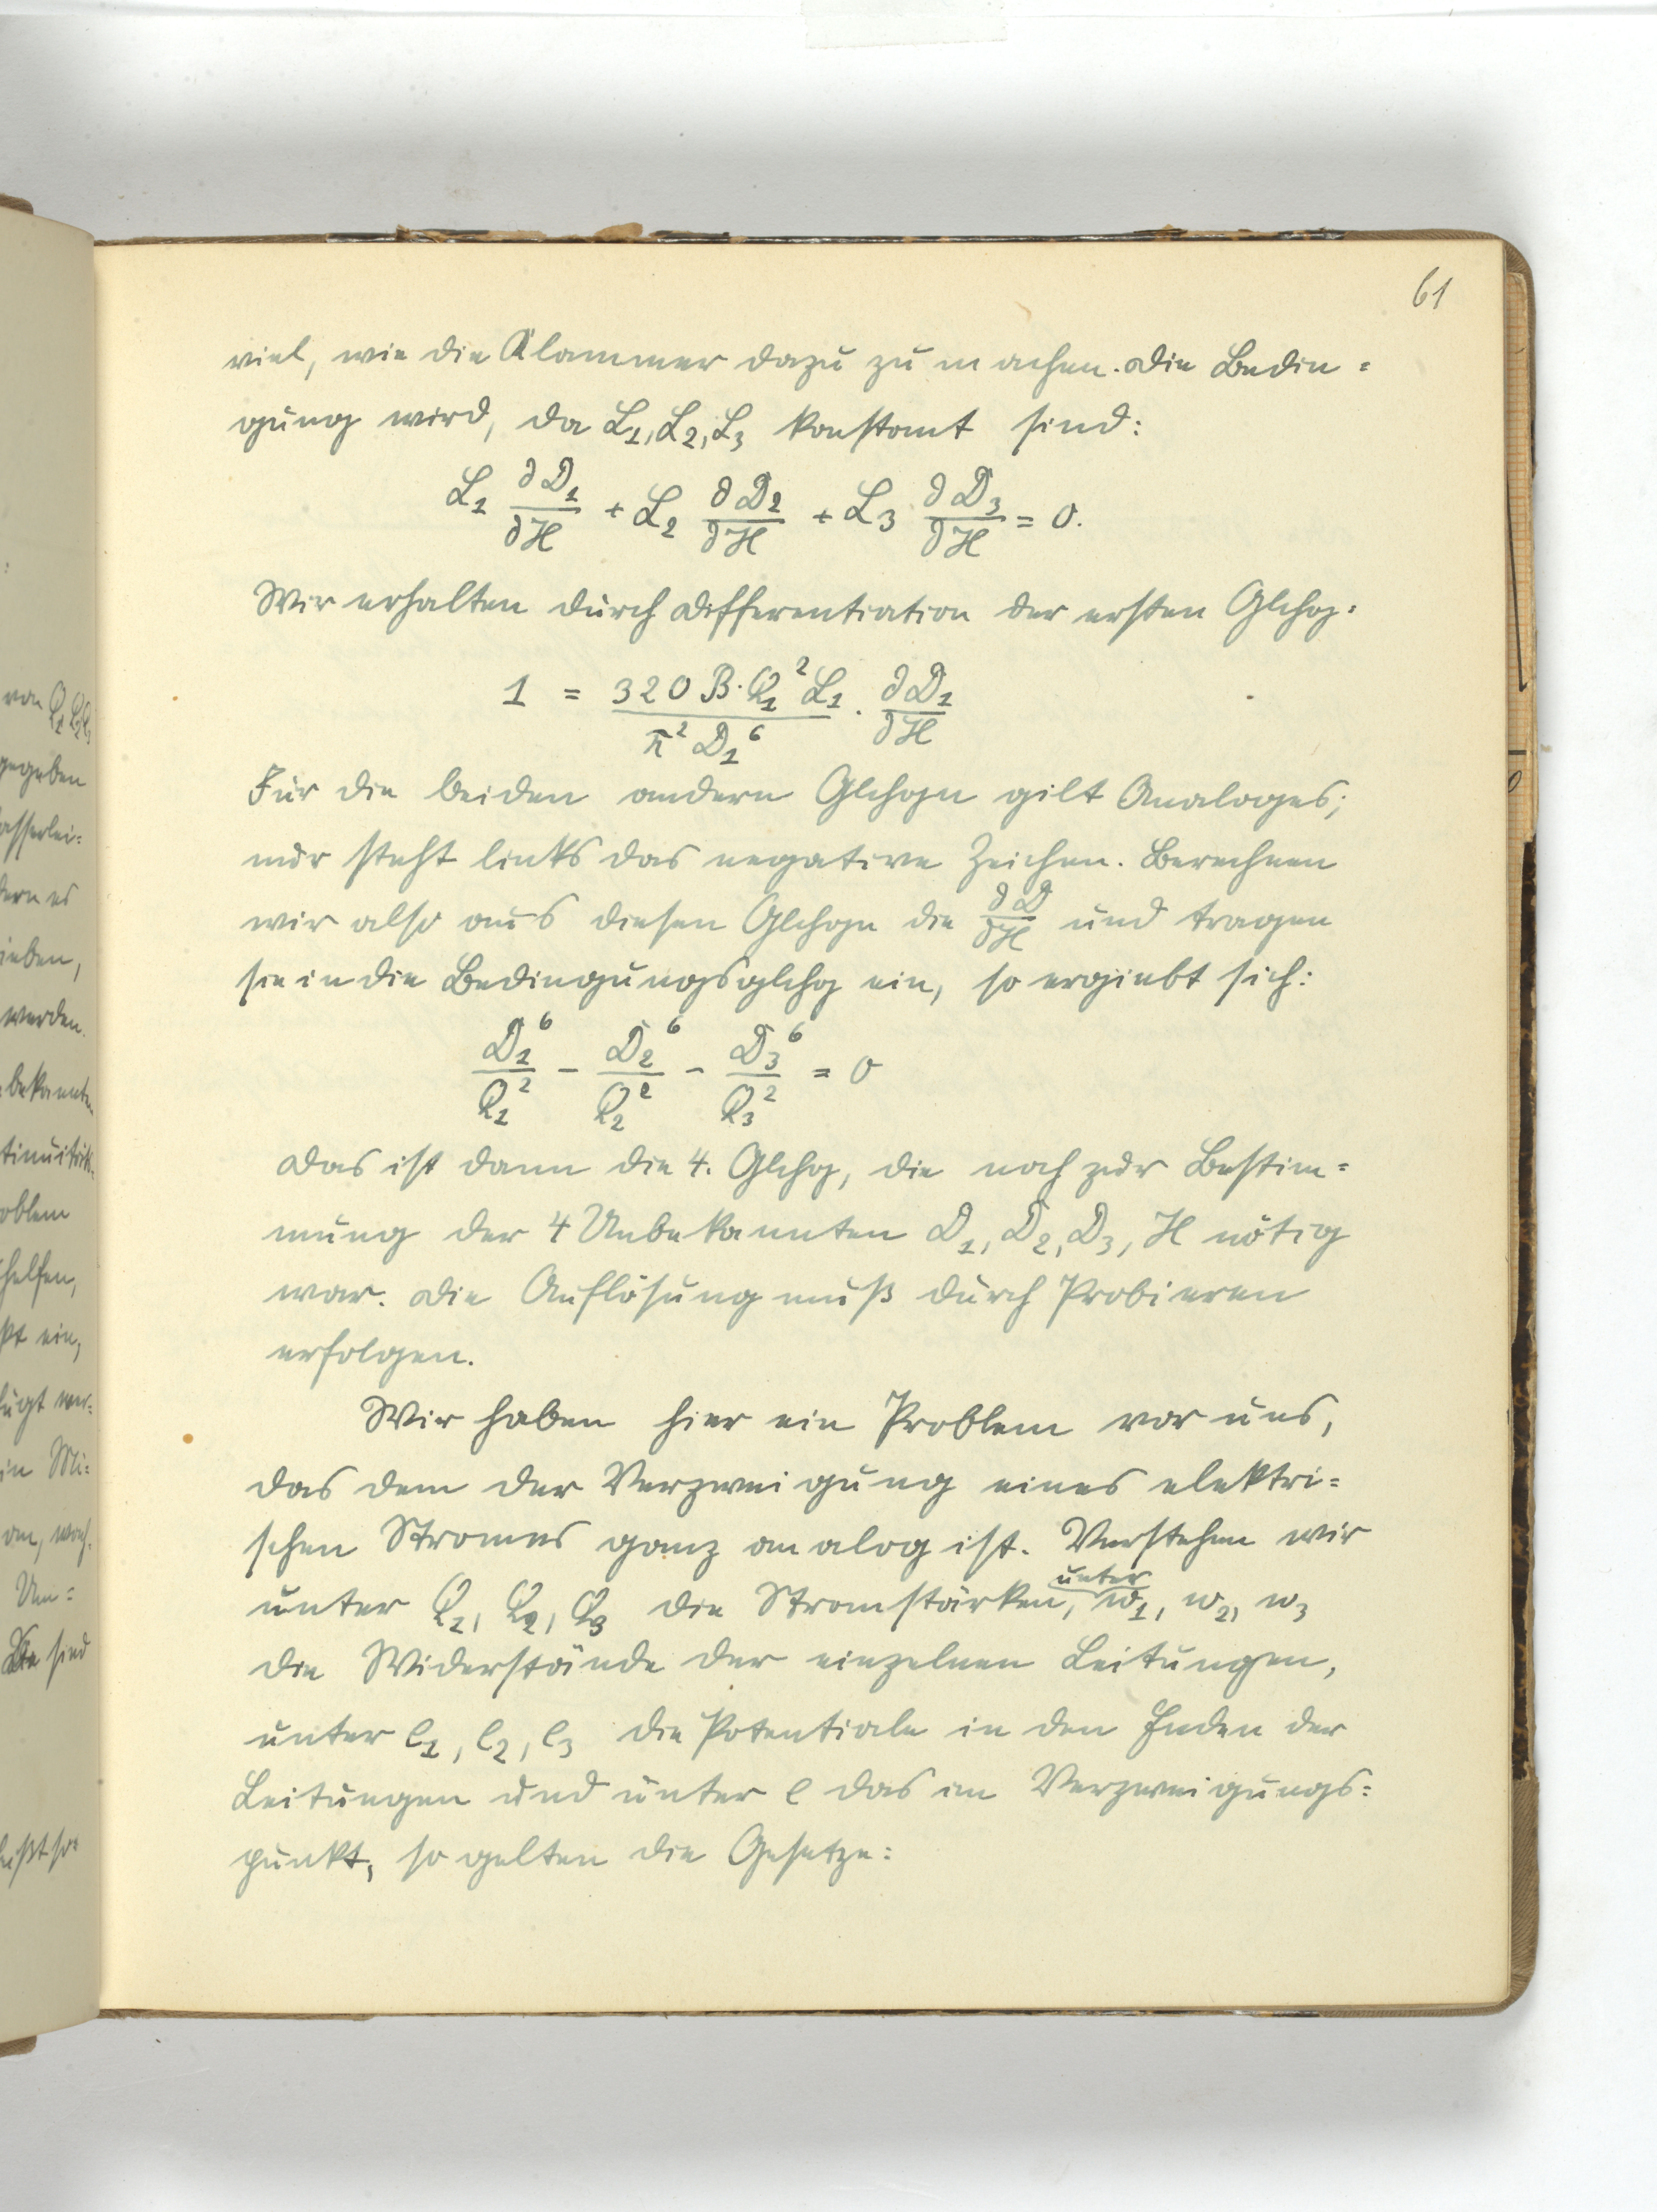 61
viel, wie die Klammer dazu zu machen. Die Bedin=
gung wird, da L₁, L₂, L₃ konstant sind:
L₁ ∂D₁/∂H + L₂ ∂D₂/∂H + L₃ ∂D₃/∂H = 0.
Wir erhalten durch Differentiation der ersten Glchg:
1 = 320 B·Q₁² L₁ / π² D₁⁶ · ∂D₁/∂H
Für die beiden andern Glchgn gilt Analoges;
nur steht links das negative Zeichen. Berechnen
wir also aus diesen Glchgn die ∂D/∂H und tragen
sie in die Bedingungsglchg ein, so ergiebt sich:
D₁⁶/Q₁² - D₂⁶/Q₂² - D₃⁶/Q₃² = 0
Das ist dann die 4. Glchg, die noch zur Bestim=
mung der 4 Unbekannten D₁, D₂, D₃, H nötig
war. Die Auflösung muß durch Probieren
erfolgen.
Wir haben hier ein Problem vor uns,
das dem der Verzweigung eines elektri=
schen Stromes ganz analog ist. Verstehen wir
unter Q₁, Q₂, Q₃ die Stromstärken, unter w₁, w₂, w₃
die Widerstände der einzelnen Leitungen,
unter e₁, e₂, e₃ die Potentiale in den Enden der
Leitungen und unter e das im Verzweigungs=
punkt, so gelten die Gesetze:
von Q₁ Q₂ Q₃
gegeben
asserlei=
dern es
ieben,
werden.
bekannten
oblem
helfen,
in Mi=
Um=
sind